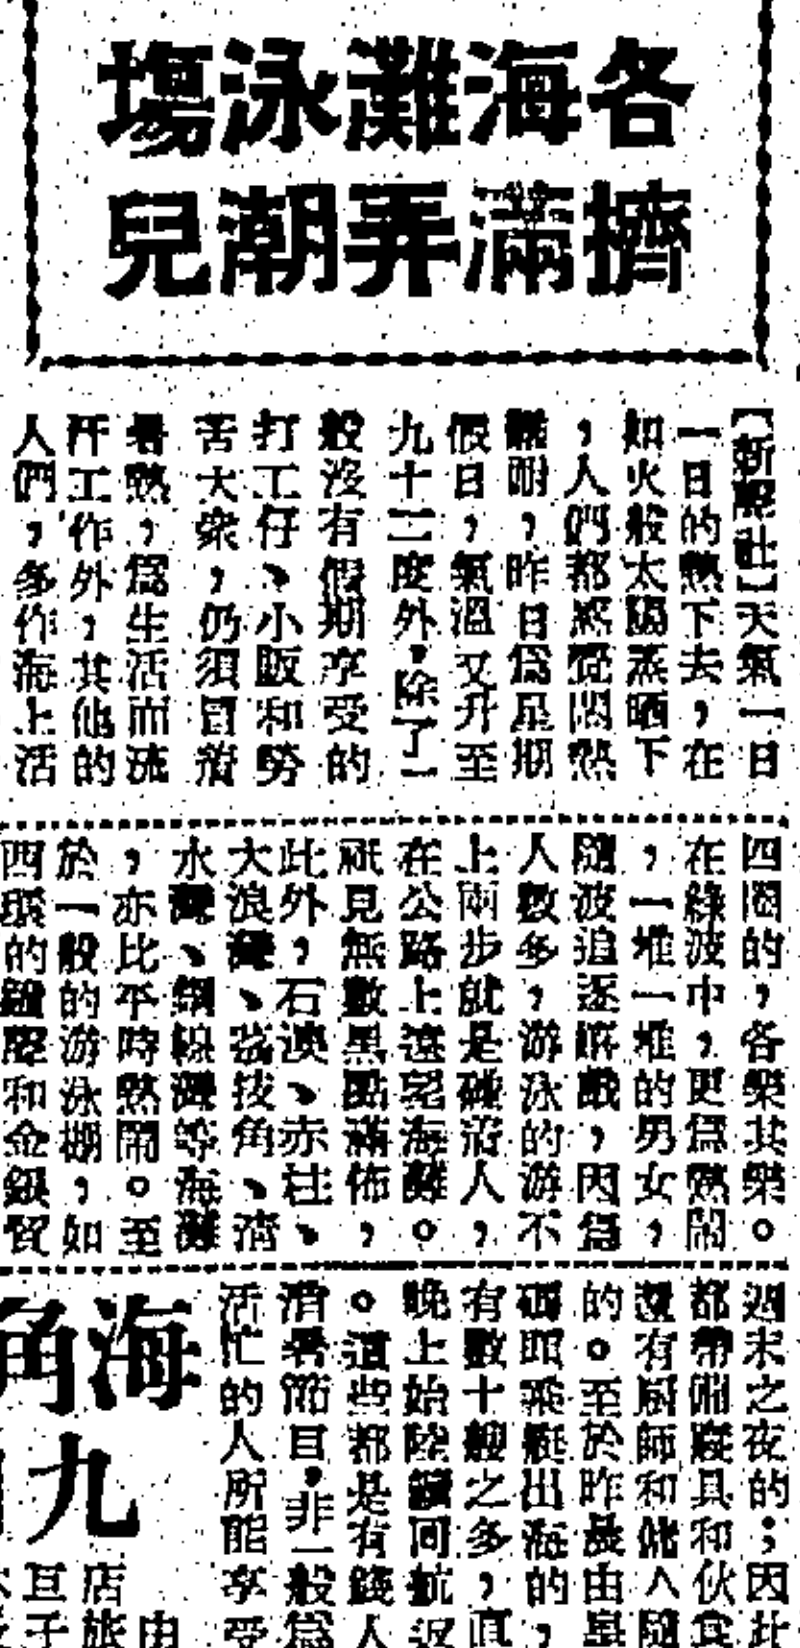 各海灘泳塲
擠滿弄潮兒
天氣一日
一日的熱下去，在
如火般太陽蒸晒下
，人們都感覺悶熱
難耐，昨日為星期
假日，氣溫又升至
九十二度外，除了一
般沒有假期享受的
打工仔、小販和勞
苦大衆，仍須冒着
暑熱，為生活而流
汗工作外，其他的
人們，多作海上活
四圈的，各樂其樂。
在綠波中，更為熱鬧
，一堆一堆的男女，
隨波追逐嬉戲，因為
人數多，游泳的游不
上兩步就是碰着人，
在公路上遠望海灘。
祇見無數黑點滿佈，
此外，石澳、赤柱、
大浪灣、荔枝角、清
水灣、銀線灣等海灘
，亦比平時熱鬧。至
於一般的游泳棚，如
西環的鐘聲和金銀貿
週末之夜的；因此
都帶備寢具和伙食
還有厨師和傭人隨
的。至於昨晨由皇
碼頭乘艇出海的，
有數十艘之多，直
晚上始陸續回航返
。這些都是有錢人
消暑節目，非一般為
活忙的人所能享受
海角
九
由
店旅